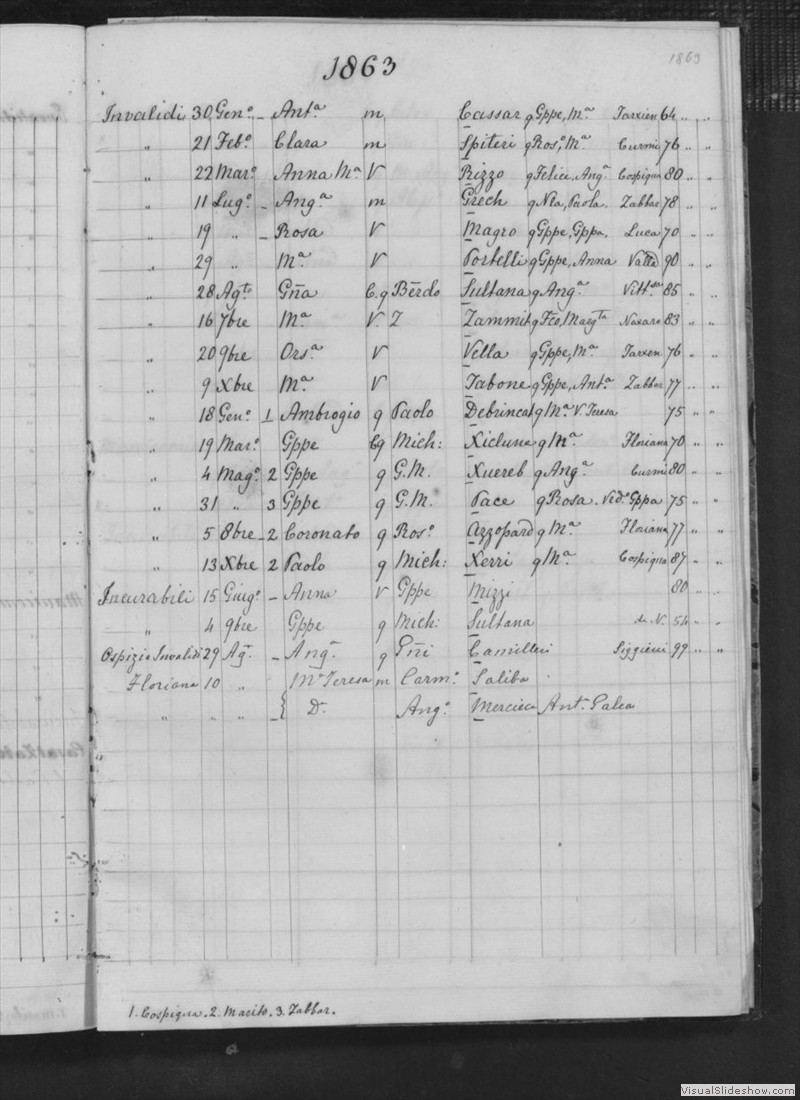 1863
1863
Invalidi 30 Genº. _ Antª m Cassar q Gppe, Mª Tarxien 64 „ „
„ 21 Febº. Clara m Spiteri q Rosº, Mª Curmi 76 „ „
„ 22 Marº. Anna Mª V Rizzo q Felice, Angª Cospiqua 80 „ „
„ 11 Lugº. _ Angª m Grech q Nla, Paola. Zabbar 78 „ „
„ 19 „ _ Rosa V Magro q Gppe, Gppa, Luca 70 „ „
„ 29 „ Mª V Portelli q Gppe, Anna Vallª 90 „ „
„ 28 Agto Gña C. q Bērdo Sultana q Angª Vittsa 85 „ „
„ 16 7bre Mª V. Z Zammit q Fco, Margta Naxaro 83 „ „
„ 20 9bre Orsª V Vella q Gppe, Mª Tarxen 76 „ „
„ 9 Xbre Mª V Tabone q Gppe, Antª Zabbar 77 „ „
„ 18 Genº. 1 Ambrogio q Paolo Debrincat q Mª V. Teresa 75 „ „
„ 19 Marº. Gppe Cq Mich: Xicluna q Mª Floriana 70 „ „
„ 4 Magº 2 Gppe q G.M. Xuereb q Angª Curmi 80 „ „
„ 31 „ 3 Gppe q G.M. Pace q Rosa. Vedº Gppa 75 „ „
„ 5 8bre _ 2 Coronato q Rosº Azzopard q Mª Floriana 77 „ „
„ 13 Xbre 2 Paolo q Mich: Xerri q Mª Cospiqua 87 „ „
Incurabili 15 Giugº. _ Anna V Gppe Mizzi 80 „ „
„ 4 9bre Gppe q Mich: Sultana di N. 54 „ „
Ospizio Invalidi 29 Agt. _ Angª q Gñi Camilleri Siggieui 99 „ „
Floriana 10 „ Mª Teresa m Carmº Saliba
„ „ „ _ { Dª Angº Mercieca Antª Galea
1. Cospiqua. 2. Macito. 3. Zabbar.
VisualSlideshow.com